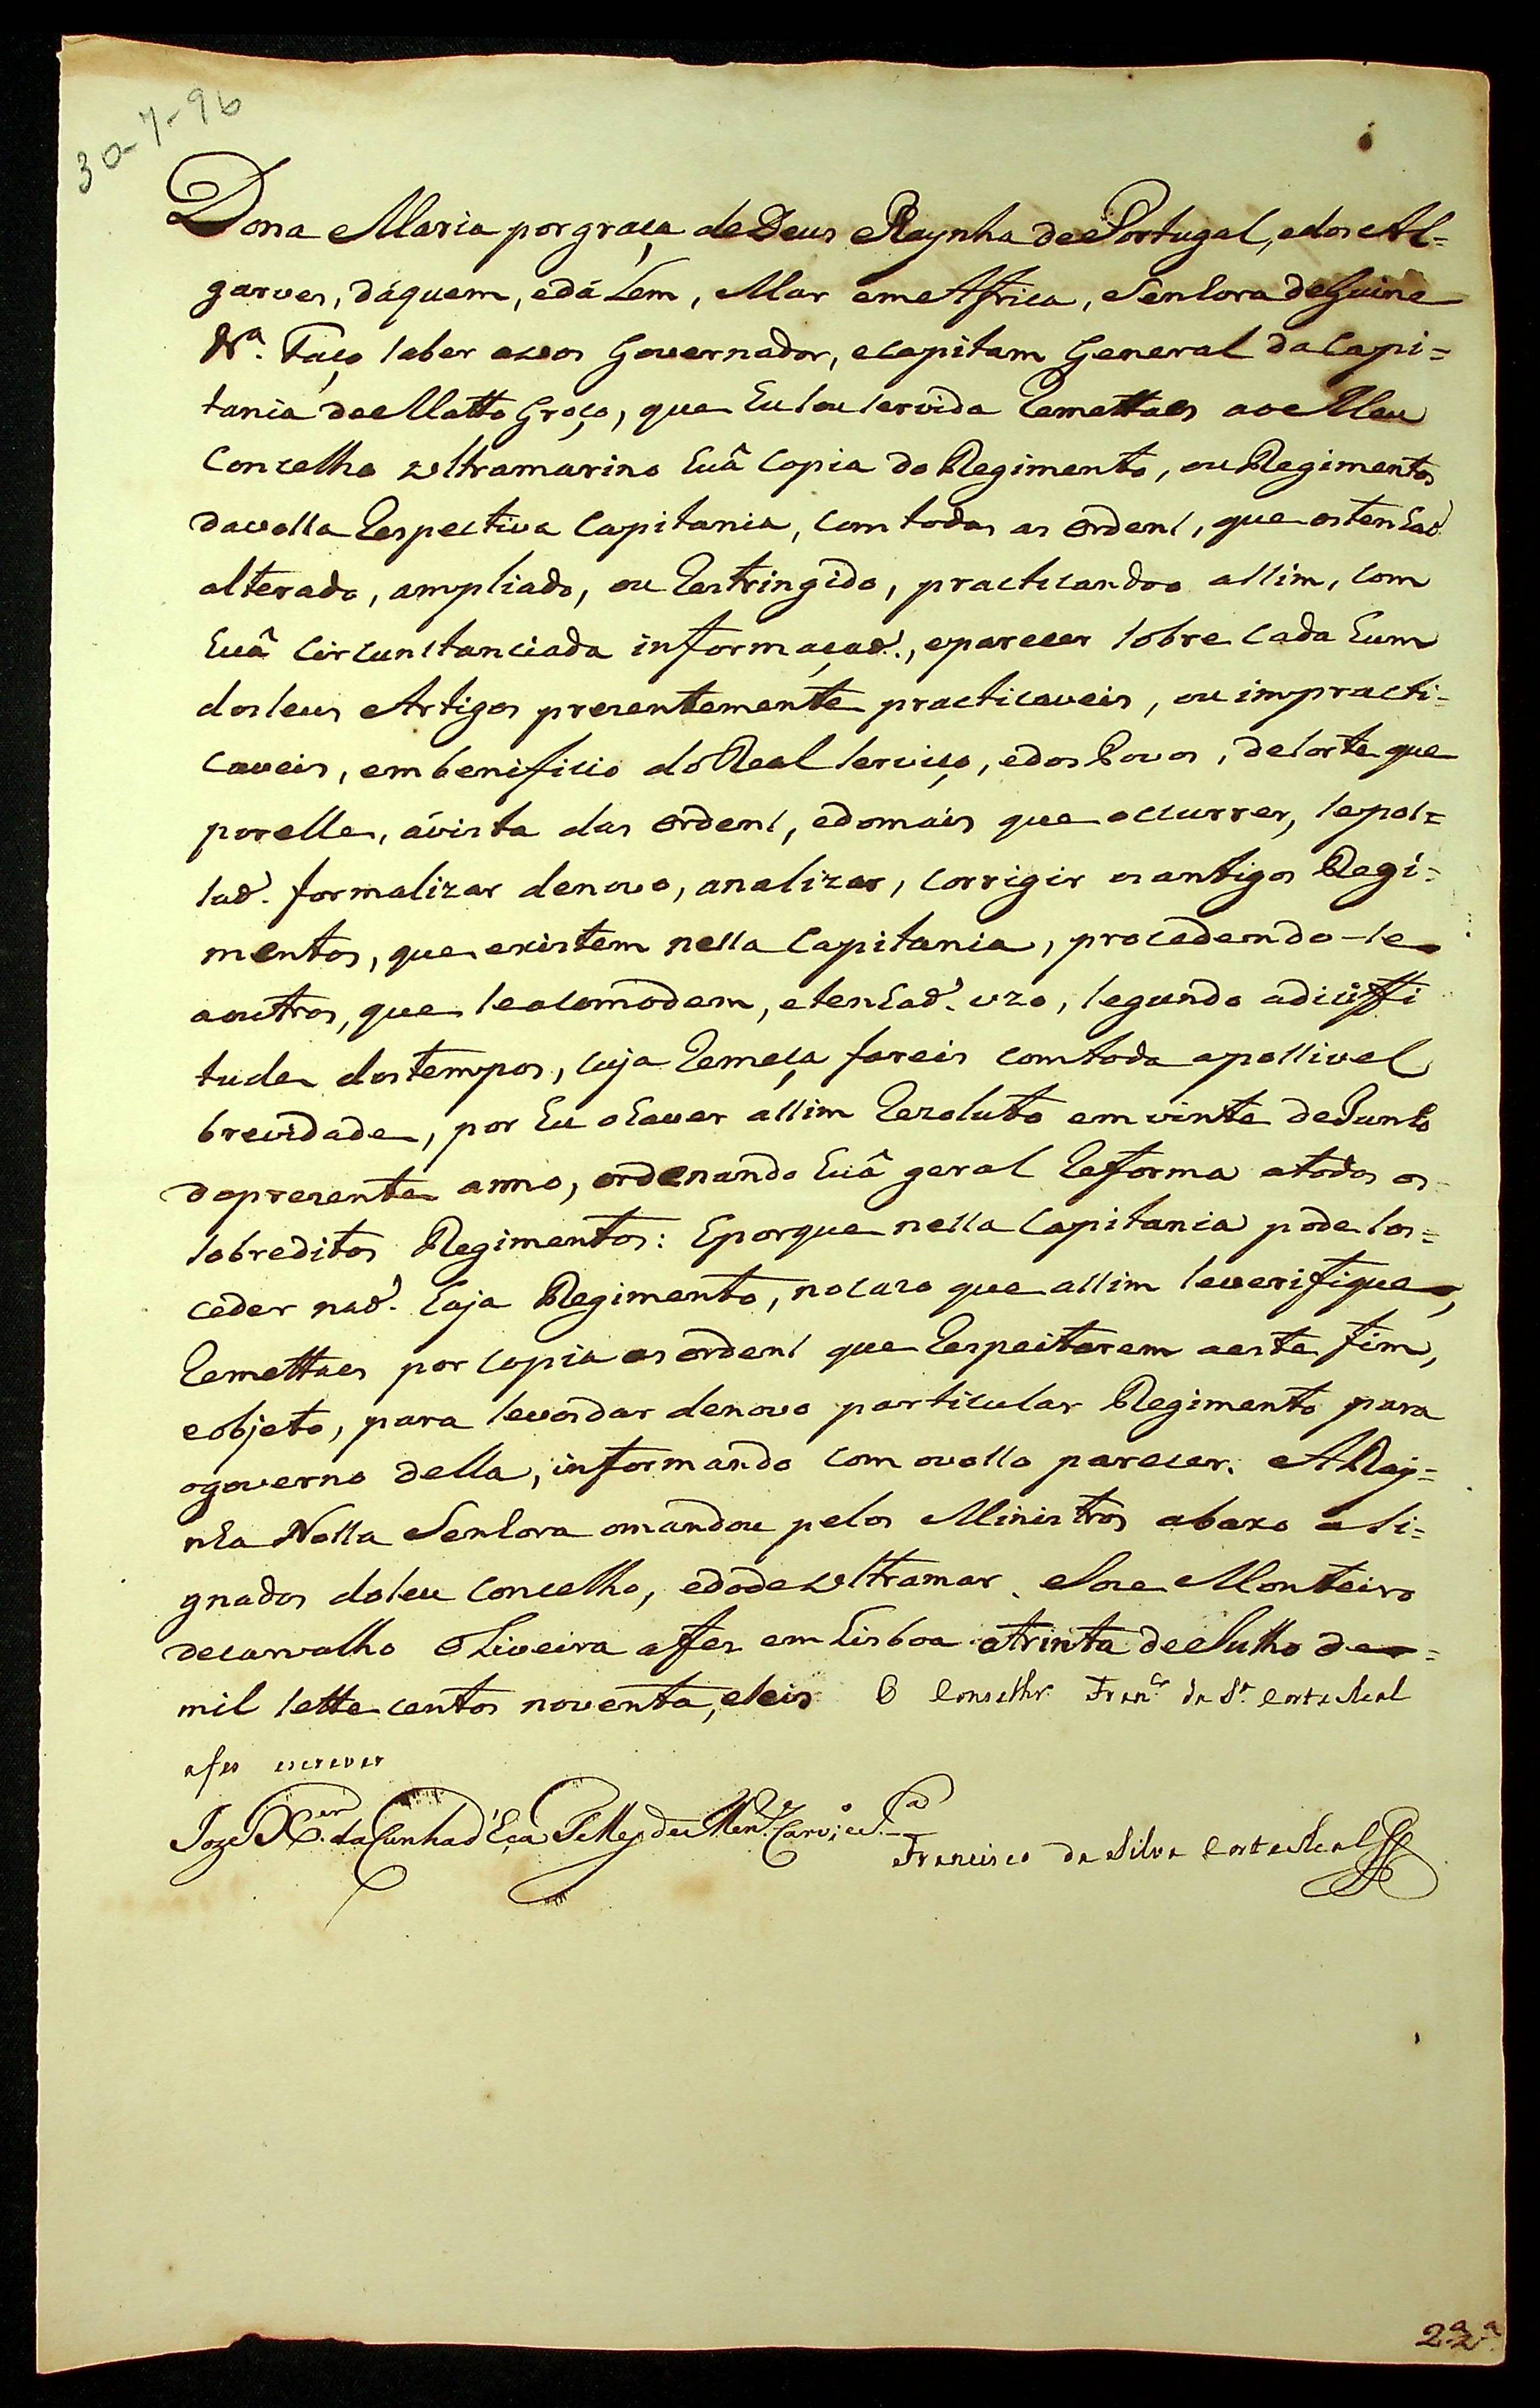 30-7-96
Dona Maria por graça de Deus Raynha de Portugal, e dos Al=
garves, dáquem, e dálem, Mar em Africa, Senhora de Guine
&ª. Faço saber a vos Governador, e Capitam General da Capi=
tania de Matto Groço, que Eu sou servida Remettaes ao Meu
Concelho Ultramarino huã Copia do Regimento, ou Regimentos
da vossa Respectiva Capitania, com todas as ordens, que os tenhaõ
alterado, ampliado, ou Restringido, practicandoo assim, com
huã Circunstanciada informaçaõ, e parecer sobre cada hum
dos seus Artigos prezentemente practicaveis, ou impracti=
caveis, em benificio do Real serviço, e dos Povos, de sorte que
por elle, á vista das ordens, e do mais que occurrer, se pos=
saõ formalizar de novo, analizar, corrigir os antigos Regi=
mentos, que existem nessa Capitania, procedendo-se
a outros, que se acomodem, e tenhaõ uzo, segundo a
tude dos tempos, cuja Remeça fareis com toda a possivel
brevidade, por Eu o haver assim Rezoluto em vinte de Junho
do prezente anno, ordenando huã geral Reforma a todos os
sobreditos Regimentos: E porque nessa Capitania pode sos=
ceder naõ haja Regimento, no cazo que assim se verifique,
Remettaes por copia as ordens que Respeitarem a este fim,
e objeto, para se vos dar de novo particular Regimento para
o governo della, informando com o vosso parecer. A Ray=
nha Nossa Senhora o mandou pelos Ministros abaxo asi=
gnados do seu Concelho, e do de Ultramar. Joze Monteiro
de Carvalho Oliveira a fes em Lisboa a trinta de Julho de=
mil sette centos noventa, e seis O Conselhrº Francº da Sª Corte Real
a fes escrever
Joze Xer da Cunha d'Eça Telles de Menzes Carvº e Sª
Francisco da Silva Corte Real
2ª 2ª